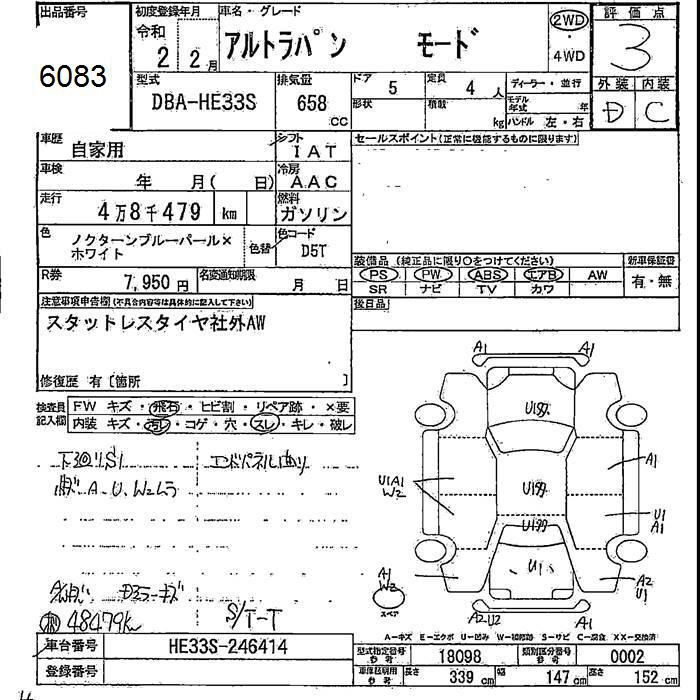 出品番号
6083
初度登録年月
令和
2 2月
車名・グレード
アルトラパン モード
2WD
・
4WD
評価点
3
外装 内装
D C
型式
DBA-HE33S
排気量
658 cc
ドア
5
定員
4 人
形状
積載
kg
ディーラー・並行
モデル年式 年
ハンドル 左・右
車歴
自家用
シフト
IAT
車検
年 月( 日)
冷房
AAC
走行
4万8千479 km
燃料
ガソリン
色
ノクターンブルーパール×
ホワイト
色替
色コード
D5T
R券
7,950円
名変通知期限
月 日
セールスポイント(正常に機能するものに限ります)
装備品(純正品に限り○をつけてください)
PS PW ABS エアB AW
SR ナビ TV カワ
新車保証書
有・無
後日品
注意事項申告欄(不具合内容等は具体的に記入して下さい)
スタットレスタイヤ社外AW
修復歴 有〔箇所 〕
検査員
記入欄
FW キズ・飛石・ヒビ割・リペア跡・×要
内装 キズ・汚レ・コゲ・穴・スレ・キレ・破レ
下廻りS1
エンドパネル曲り
A、U、W2ムラ
48479km
S/T-T
A1
A1
U1
A1
U1A1
W2
A1
U1
A1
U1
A1
W2
スペア
A2
U1
A2U2
A1
A-キズ E-エクボ U-凹み W-補修跡 S-サビ C-腐食 XX-交換済
車台番号
HE33S-246414
登録番号
型式指定番号
参考
18098
類別区分番号
参考
0002
長さ 339 cm
幅 147 cm
高さ 152 cm